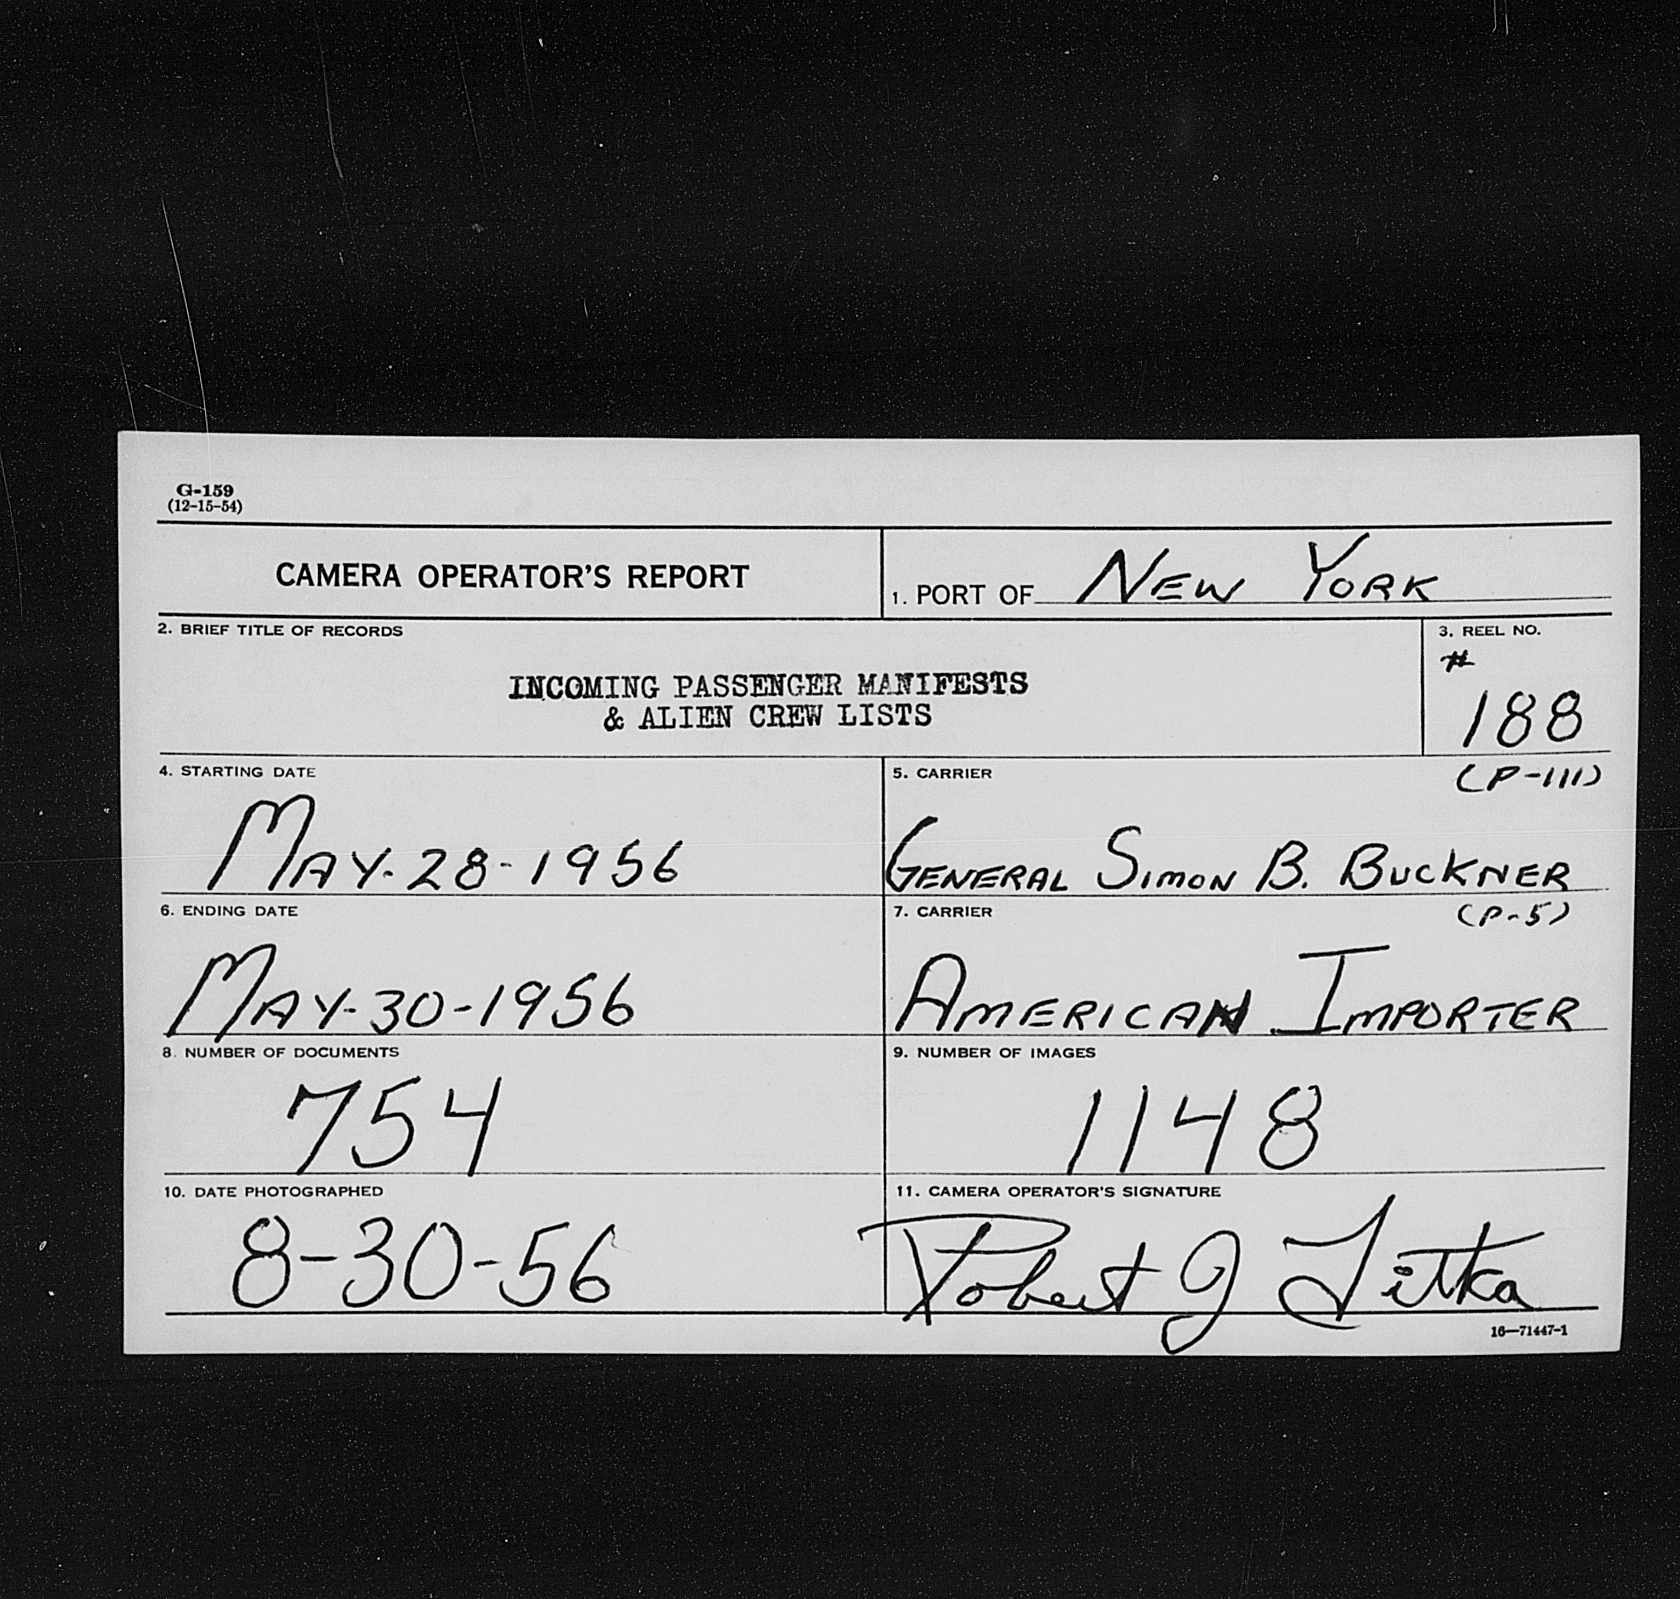 G-159
(12-15-54)
CAMERA OPERATOR'S REPORT
1. PORT OF NEW YORK
2. BRIEF TITLE OF RECORDS
INCOMING PASSENGER MANIFESTS
& ALIEN CREW LISTS
3. REEL NO.
#
188
4. STARTING DATE
MAY-28-1956
5. CARRIER (P-111)
GENERAL SIMON B. BUCKNER
6. ENDING DATE
MAY-30-1956
7. CARRIER (P-5)
AMERICAN IMPORTER
8. NUMBER OF DOCUMENTS
754
9. NUMBER OF IMAGES
1148
10. DATE PHOTOGRAPHED
8-30-56
11. CAMERA OPERATOR'S SIGNATURE
Robert J
16—71447-1